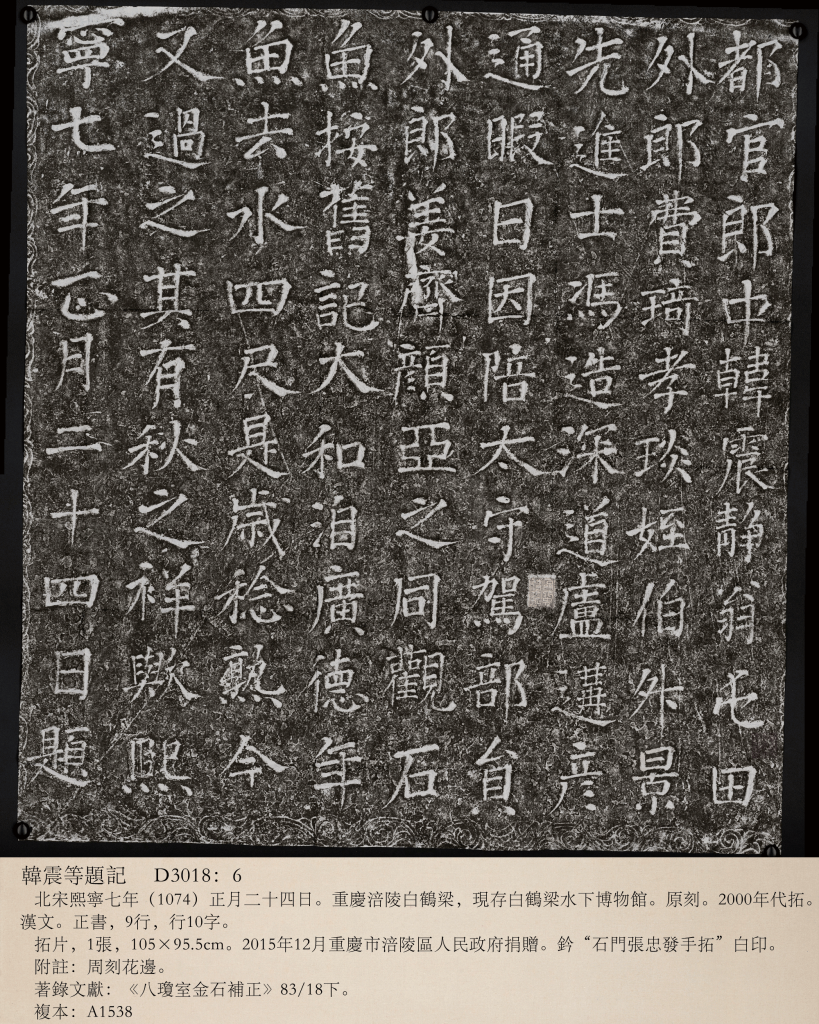 都官郎中韓震靜翁屯田
外郎費琦孝琰姪伯升景
先進士馮造深道盧遘彥
通暇日因陪太守駕部員
外郎姜齊顏亞之同觀石
魚按舊記大和洎廣德年
魚去水四尺是歲稔熟今
又過之其有秋之祥歟熙
寧七年正月二十四日題
韓震等題記 D3018：6
北宋熙寧七年（1074）正月二十四日。重慶涪陵白鶴梁，現存白鶴梁水下博物館。原刻。2000年代拓。
漢文。正書，9行，行10字。
拓片，1張，105×95.5cm。2015年12月重慶市涪陵區人民政府捐贈。鈐“石門張忠發手拓”白印。
附註：周刻花邊。
著錄文獻：《八瓊室金石補正》83/18下。
複本：A1538